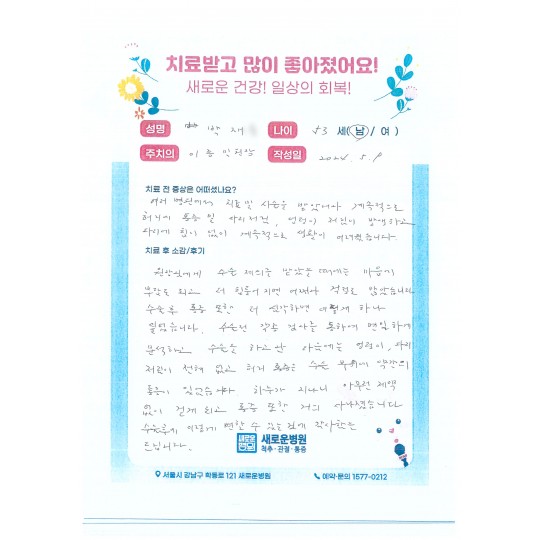 치료받고 많이 좋아졌어요!
새로운 건강! 일상의 회복!
성명 박재 나이 53 세(남/여)
주치의 이종민원장 작성일 2024. 5. 9
치료 전 증상은 어떠셨나요?
여러 병원에서 치료 및 시술을 받았으나 계속적으로
허리에 통증 및 다리저림, 엉덩이 저림이 발생하고
다리에 힘이 없이 계속적으로 생활이 어려웠습니다
치료 후 소감/후기
원장님에게 수술 제의를 받았을 때에는 마음이
부담도 되고 더 힘들어지면 어쩌나 걱정도 많았습니다
수술후 통증 또한 더 심각하면 어떻게 하나
싶었습니다. 수술전 각종 검사를 통하여 면밀하게
분석하고 수술을 하고난 다음에는 엉덩이, 다리
저림이 전혀 없고 허리 통증은 수술 부위에 약간의
통증이 있었습니다 하루가 지나니 아무런 제약
없이 걷게 되고 통증 또한 거의 사라졌습니다
수술후 이렇게 변할 수 있는 것에 감사한
드립니다.
새로운병원
척추·관절·통증
서울시 강남구 학동로 121 새로운병원 예약·문의 1577-0212